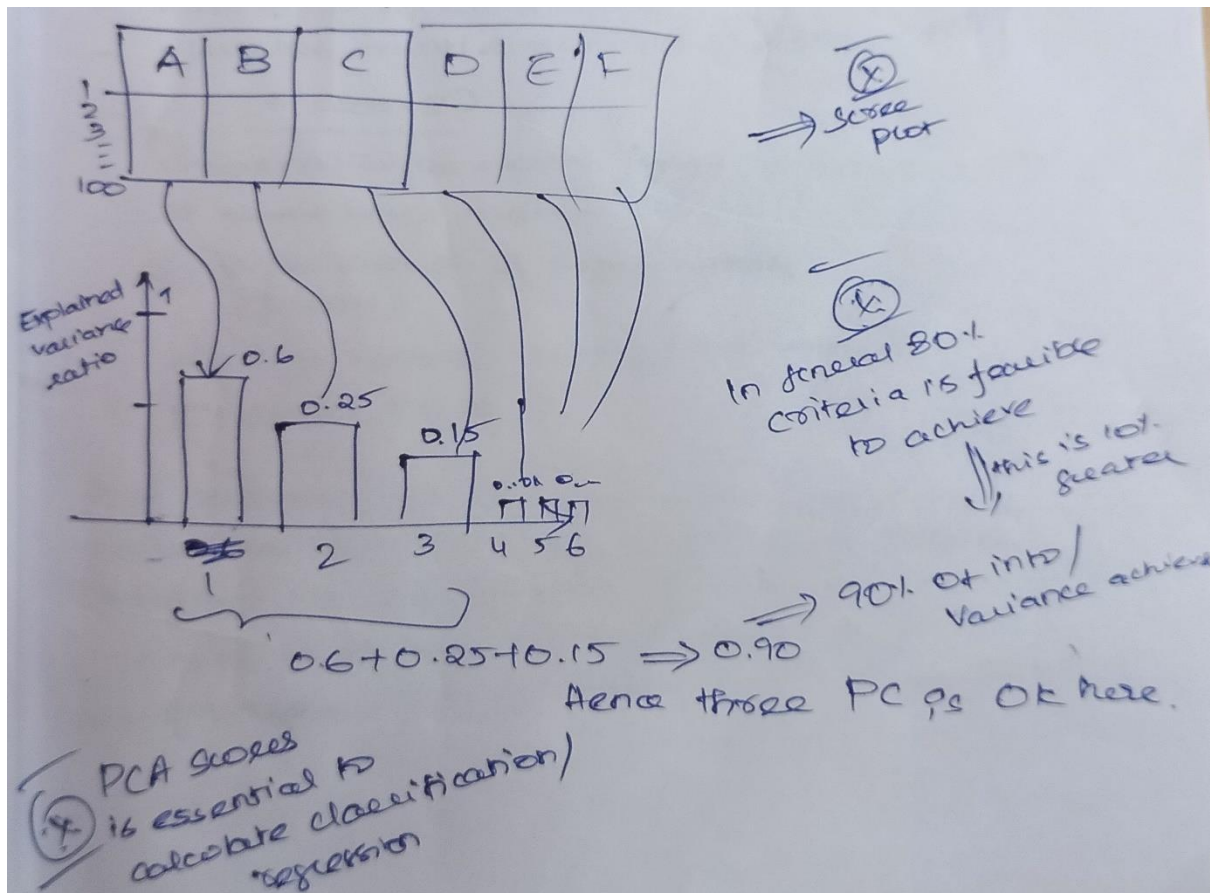 A B C D E F
1
2
3
100
x
⇒ scree
plot
Explained
variance
ratio
1
0.6
0.25
0.15
1 2 3 4 5 6
x
In general 80%
criteria is feasible
to achieve
this is 10%
greater
⇒ 90% of info/
variance achieve
0.6+0.25+0.15 ⇒ 0.90
Hence three PC is ok here.
x PCA scores
is essential to
calculate classification/
regression